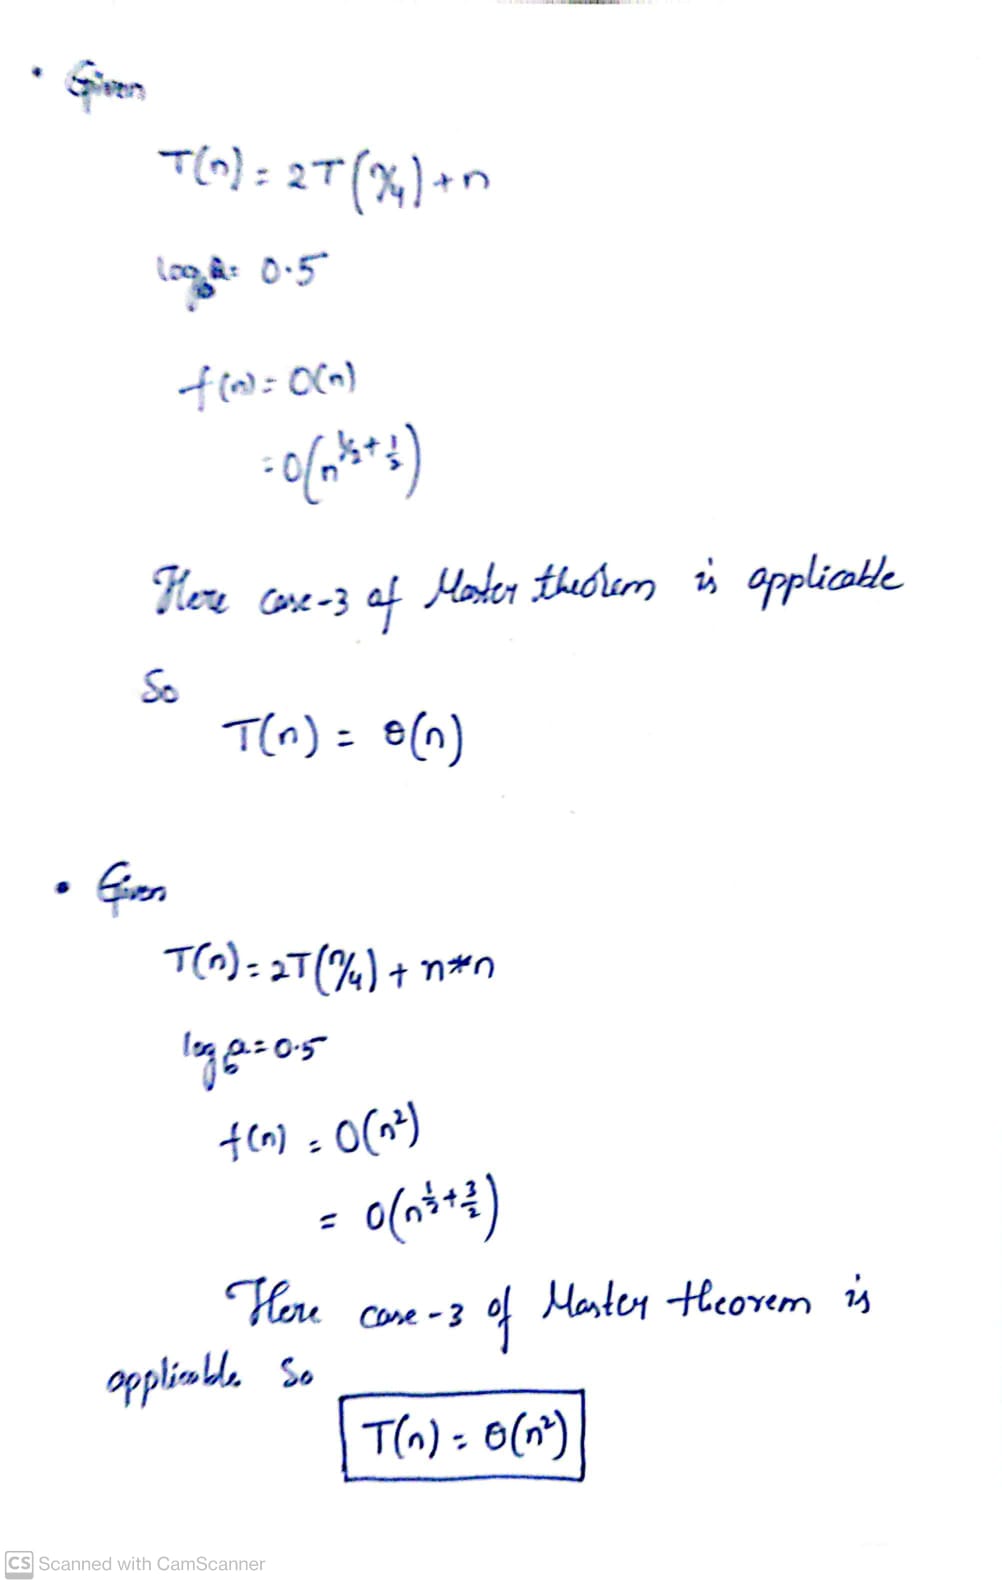 • Given
T(n) = 2T(n/4) + n
log_b a = 0.5
f(n) = O(n)
= O(n^{1/2 + 1/2})
Here case-3 of Master theorem is applicable
So
T(n) = θ(n)
• Given
T(n) = 2T(n/4) + n*n
log_b a = 0.5
f(n) = O(n²)
= O(n^{1/2 + 3/2})
Here case-3 of Master theorem is
applicable So
T(n) = θ(n²)
CS Scanned with CamScanner